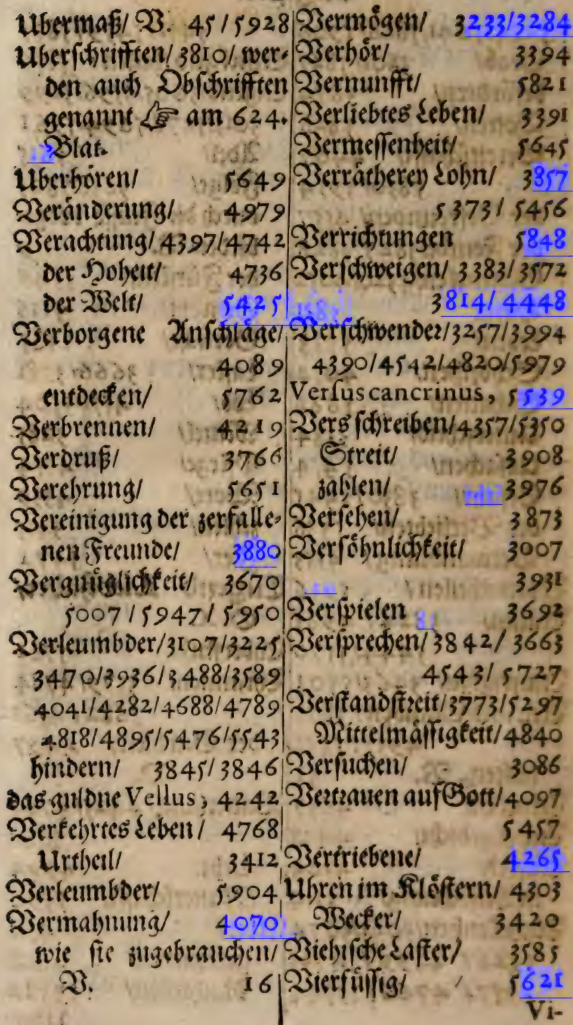 Ubermaß/ V. 45/5928
Uberschrifften/ 3810/ wer-
den auch Obschrifften
genannt ☞ am 624.
Blat.
Uberhören/ 5649
Veränderung/ 4979
Verachtung/ 4397/4742
der Hoheit/ 4736
der Welt/ 5425
Verborgene Anschläge/
4089
entdecken/ 5762
Verbrennen/ 4219
Verdruß/ 3766
Verehrung/ 5651
Vereinigung der zerfalle-
nen Freunde/ 3880
Vergnüglichkeit/ 3670
5007/5947/5950
Verleumbder/3107/3225
3470/3936/3488/3589
4041/4282/4688/4789
4818/4895/5476/5543
hindern/ 3845/3846
das guldne Vellus, 4242
Verkehrtes Leben/ 4768
Urtheil/ 3412
Verleumbder/ 5904
Vermahnung/ 4070
wie sie zugebrauchen/
V. 16
Vermögen/ 3233/3284
Verhör/ 3394
Vernunfft/ 5821
Verliebtes Leben/ 3391
Vermessenheit/ 5645
Verrätherey Lohn/ 3857
5373/ 5456
Verrichtungen 5848
Verschweigen/ 3383/3572
3814/ 4448
Verschwender/3257/3994
4390/4542/4820/5979
Versus cancrinus, 5539
Vers schreiben/4357/5350
Streit/ 3908
zahlen/ 3976
Versehen/ 3873
Versöhnlichkeit/ 3007
3931
Verspielen 3692
Versprechen/ 3842/ 3663
4543/ 5727
Verstandstreit/3773/5297
Mittelmässigkeit/4840
Versuchen/ 3086
Vertrauen auf Gott/4097
5457
Vertriebene/ 4265
Uhren im Klöstern/ 4303
Wecker/ 3420
Viehische Laster/ 3585
Vierfüssig/ 5621
Vi-